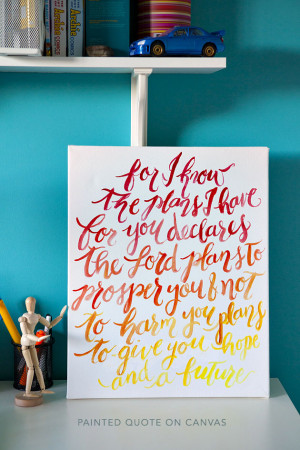 for I know
the plans I have
for you declares
the Lord plans to
prosper you & not
to harm you plans
to give you hope
and a future
PAINTED QUOTE ON CANVAS